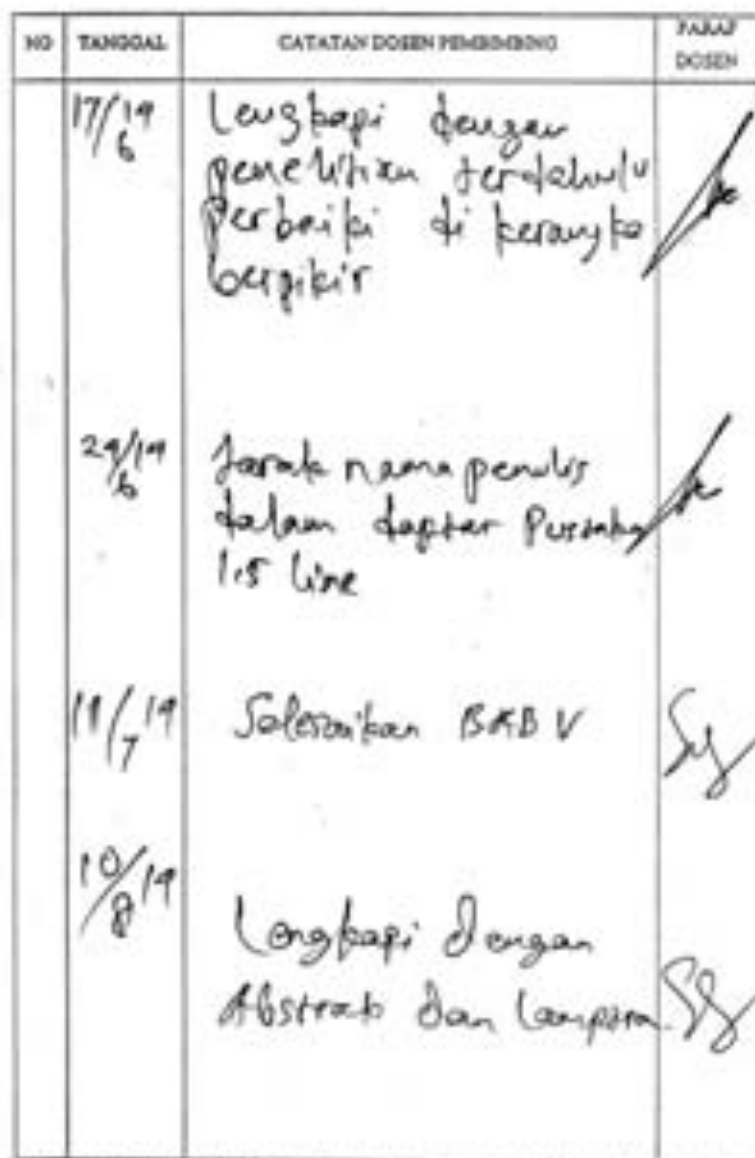 NO TANGGAL CATATAN DOSEN PEMBIMBING PARAF DOSEN
17/6 19 Lengkapi dengan
penelitian terdahulu
perbaiki di kerangka
berpikir
24/6 19 Jarak nama penulis
dalam daftar Pustaka
1.5 line
11/7 19 Selesaikan BAB V
10/8 19 Lengkapi dengan
Abstrak dan lampiran